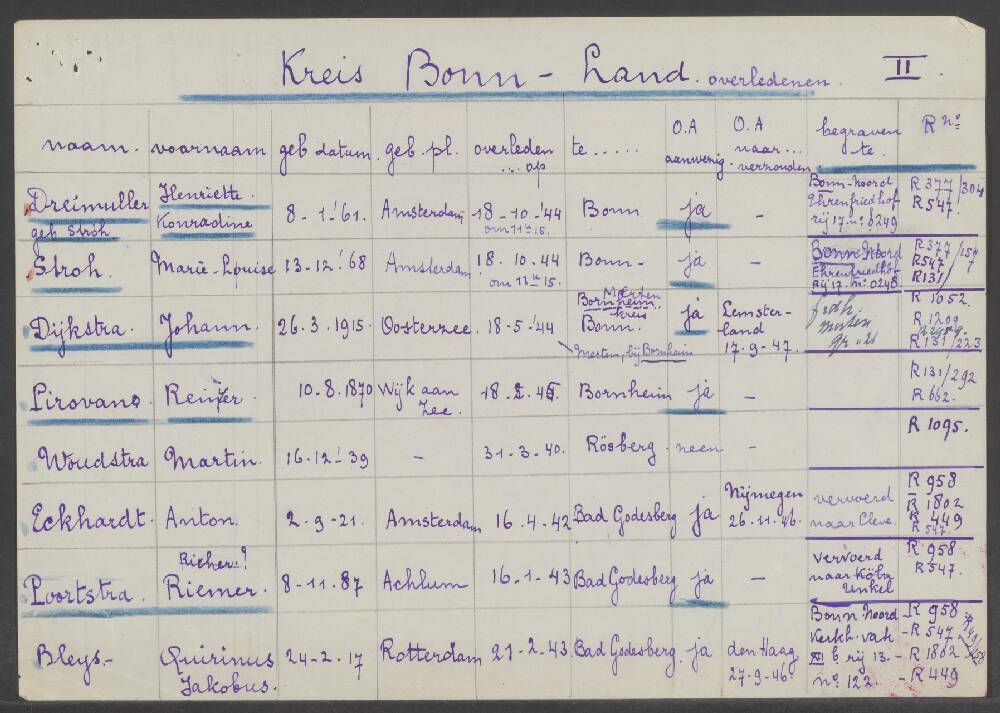 Kreis Bonn - Land. overledenen. II
naam. voornaam geb datum. geb. pl. overleden ... op te ..... O.A aanwezig O.A naar... verzonden. begraven te. R no
Dreimuller geb Ströh Henriette. Konradine 8-1-'61. Amsterdam 18-10-'44 om 11 u 15. Bonn ja - Bonn-Noord Ehrenfriedhof rij 17. no: 0249 R 377/304 R 547.
Stroh. Marie-Louise 13-12-'68 Amsterdam 18.10.44 om 11 u 15. Bonn- ja - Bonn-Noord Ehrenfriedhof Rij 17. no: 0248 R 377 R 547 R 131/
Dijkstra. Johann. 26.3.1915. Oosterzee. 18-5-'44 Merten Bornheim kreis Bonn. Merten, bij Bornheim ja Lemsterland 17-9-47. Merten R 1052. R 1209 R 131/223
Pirovano Reinier. 10.8.1870 Wijk aan Zee. 18-2-45. Bornheim ja - R 131/292 R 662.
Woudstra Martin. 16-12-'39 - 31-3-40. Rösberg neen - R 1095.
Eckhardt. Anton. 2-9-21. Amsterdam 16.4.42 Bad Godesberg ja Nijmegen 26.11.46. vervoerd naar Cleve. R 958 R 1802 R 449 R 547.
Poortstra. Richer.? Riemer. 8-11-87 Achlum 16-1-43 Bad Godesberg ja - vervoerd naar Köln Unkel R 958. R 547.
Bleys.- Quirinus Jakobus. 24-2-17 Rotterdam 21-2-43 Bad Godesberg. ja den Haag 27-9-46. Bonn Noord Kerkh. vak XI b rij 13. no. 122. - R 958 - R 547 - R 1802 - R 449